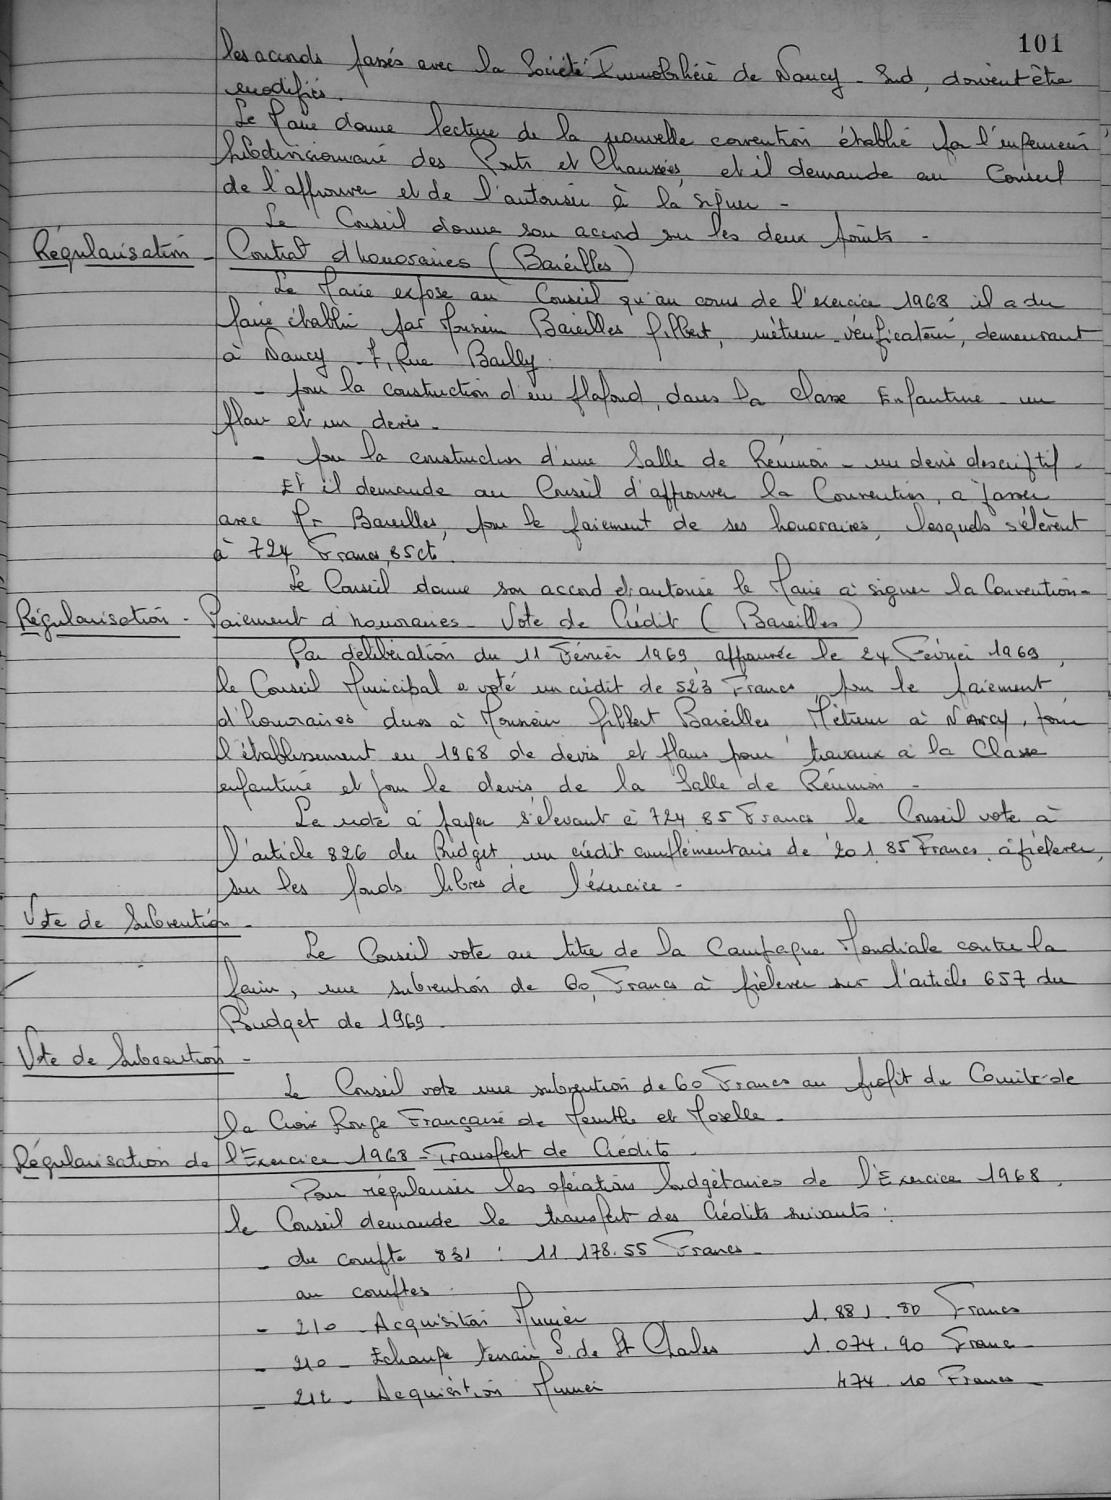 101
les accords passés avec la Société Immobilière de Nancy-Sud, doivent être
modifiés.
Le Maire donne lecture de la nouvelle convention établie par l'ingénieur
Subdivisionnaire des Ponts et Chaussées, et il demande au Conseil
de l'approuver et de l'autoriser à la signer -
Le Conseil donne son accord sur les deux points -
Régularisation - Contrat d'honoraires (Bareilles)
Le Maire expose au Conseil qu'au cours de l'exercice 1968 il a du
faire établir par Monsieur Bareilles Gilbert, métreur-vérificateur, demeurant
à Nancy 7, Rue Bailly.
- pour la construction d'un plafond, dans la classe Enfantine - un
plan et un devis -
- pour la construction d'une Salle de Réunion - un devis descriptif -
Et il demande au Conseil d'approuver la Convention, a passer
avec Mr Bareilles, pour le paiement de ses honoraires, lesquels s'élèvent
à 724 Francs,85ct.
Le Conseil donne son accord et autorise le Maire à signer la Convention -
Régularisation - Paiement d'honoraires - Vote de Crédit (Bareilles)
Par délibération du 11 Février 1969, approuvée le 24 Février 1969,
le Conseil Municipal a voté un crédit de 523 Francs, pour le paiement
d'honoraires dues à Monsieur Gilbert Bareilles Métreur à Nancy, pour
l'établissement en 1968 de devis et plans pour travaux à la Classe
enfantine et pour le devis de la Salle de Réunion -
La note à payer s'élevant à 724,85 Francs le Conseil vote à
l'article 826 du Budget un crédit complémentaire de 201,85 Francs à prélever,
sur les fonds libres de l'exercice -
Vote de Subvention -
Le Conseil vote au titre de la Campagne Mondiale contre la
faim, une subvention de 60, Francs à prélever sur l'article 657 du
Budget de 1969.
Vote de Subvention -
Le Conseil vote une subvention de 60 Francs au profit du Comité de
la Croix Rouge Française de Meurthe et Moselle -
Régularisation de l'Exercice 1968 - Transfert de Crédits -
Pour régulariser les opérations budgétaires de l'Exercice 1968,
le Conseil demande le transfert des Crédits suivants :
- du compte 831 : 11.178.55 Francs -
au comptes :
- 210 - Acquisition Munier 1.881.80 Francs
- 210 - Echange terrain S. de St Charles 1.074.90 Francs -
- 212 - Acquisition Munier 474.10 Francs -